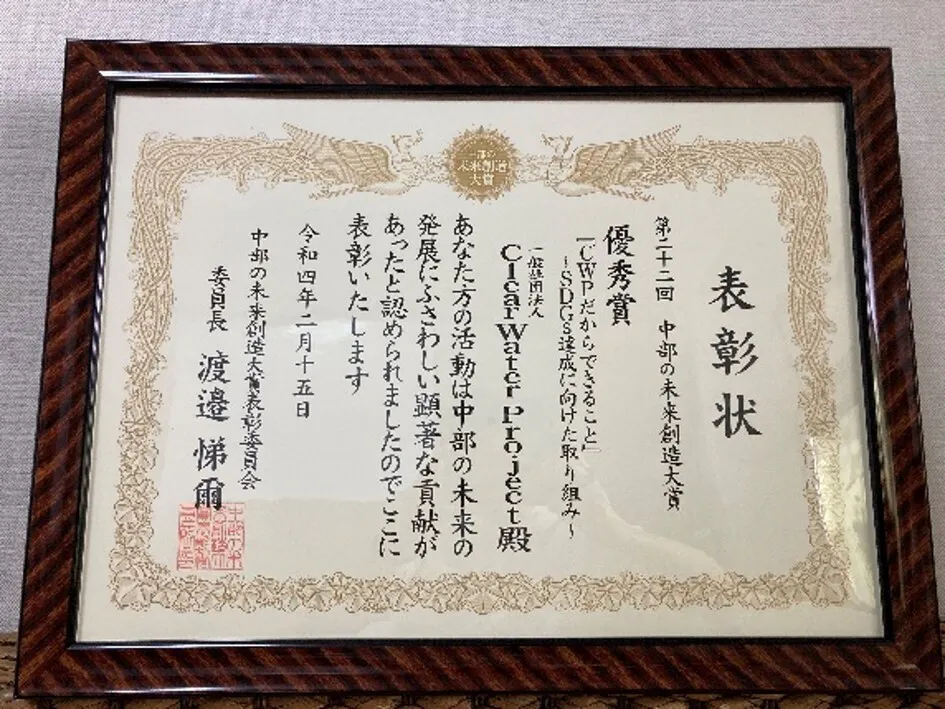 中部の
未来創造
大賞
表彰状
第二十二回 中部の未来創造大賞
優秀賞
「CWPだからできること」
~SDGs達成に向けた取り組み~
一般社団法人
ClearWater Project 殿
あなた方の活動は中部の未来の
発展にふさわしい顕著な貢献が
あったと認められましたのでここに
表彰いたします
令和四年二月十五日
中部の未来創造大賞表彰委員会
委員長 渡邉 悌爾